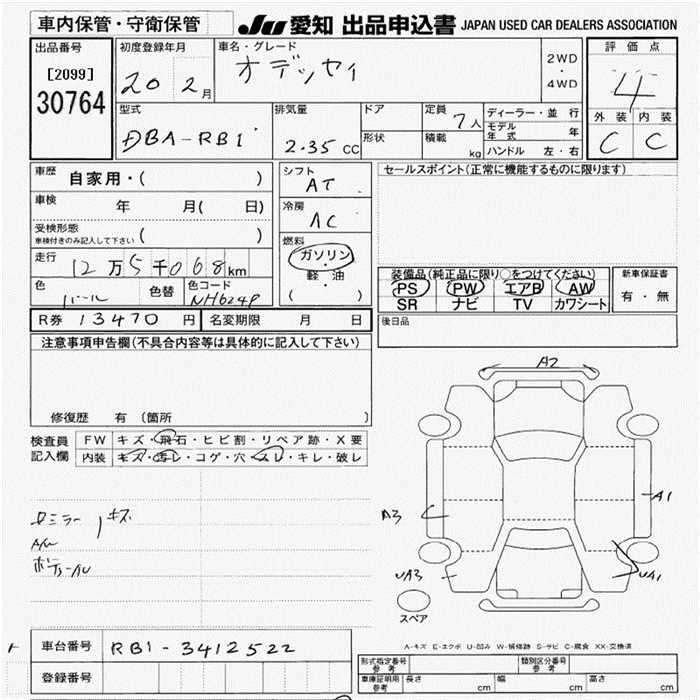 車内保管・守衛保管
JU 愛知 出品申込書 JAPAN USED CAR DEALERS ASSOCIATION
出品番号
[2099]
30764
初度登録年月
20 2月
車名・グレード
オデッセイ
2WD
・
4WD
評価点
4
外装 内装
C C
型式
DBA-RB1
排気量
2.35 CC
ドア
形状
定員 7人
積載 kg
ディーラー・並行
モデル年式 年
ハンドル 左・右
車歴 自家用・( )
車検 年 月( 日)
受検形態
車検付きのみ記入して下さい ( )
走行 12万5千068km
色 パール 色替
色コード NH624P
シフト
AT
冷房
AC
燃料
ガソリン
・
軽・油
( )
セールスポイント(正常に機能するものに限ります)
装備品(純正品に限り○をつけてください)
PS PW エアB AW
SR ナビ TV カワシート
新車保証書
有・無
後日品
R券 13470 円
名変期限 月 日
注意事項申告欄(不具合内容等は具体的に記入して下さい)
修復歴 有(箇所 )
検査員記入欄
FW キズ・飛石・ヒビ割・リペア跡・X要
内装 キズ・汚レ・コゲ・穴・スレ・キレ・破レ
ミラー キズ
A2
A1
A3
UA3
UA1
スペア
A-キズ E-エクボ U-凹み W-補修跡 S-サビ C-腐食 XX-交換済
車台番号 RB1-3412522
登録番号
形式指定番号 参考
類別区分番号 参考
車庫証明用 参考 長さ cm 幅 cm 高さ cm